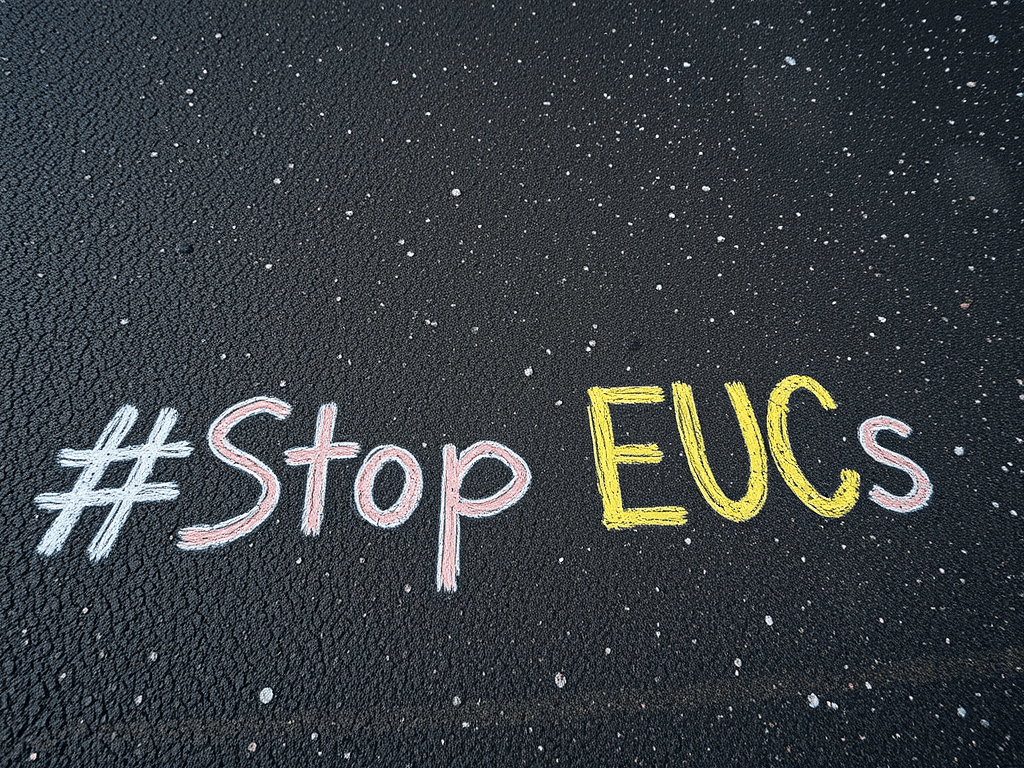 #Stop EUCs